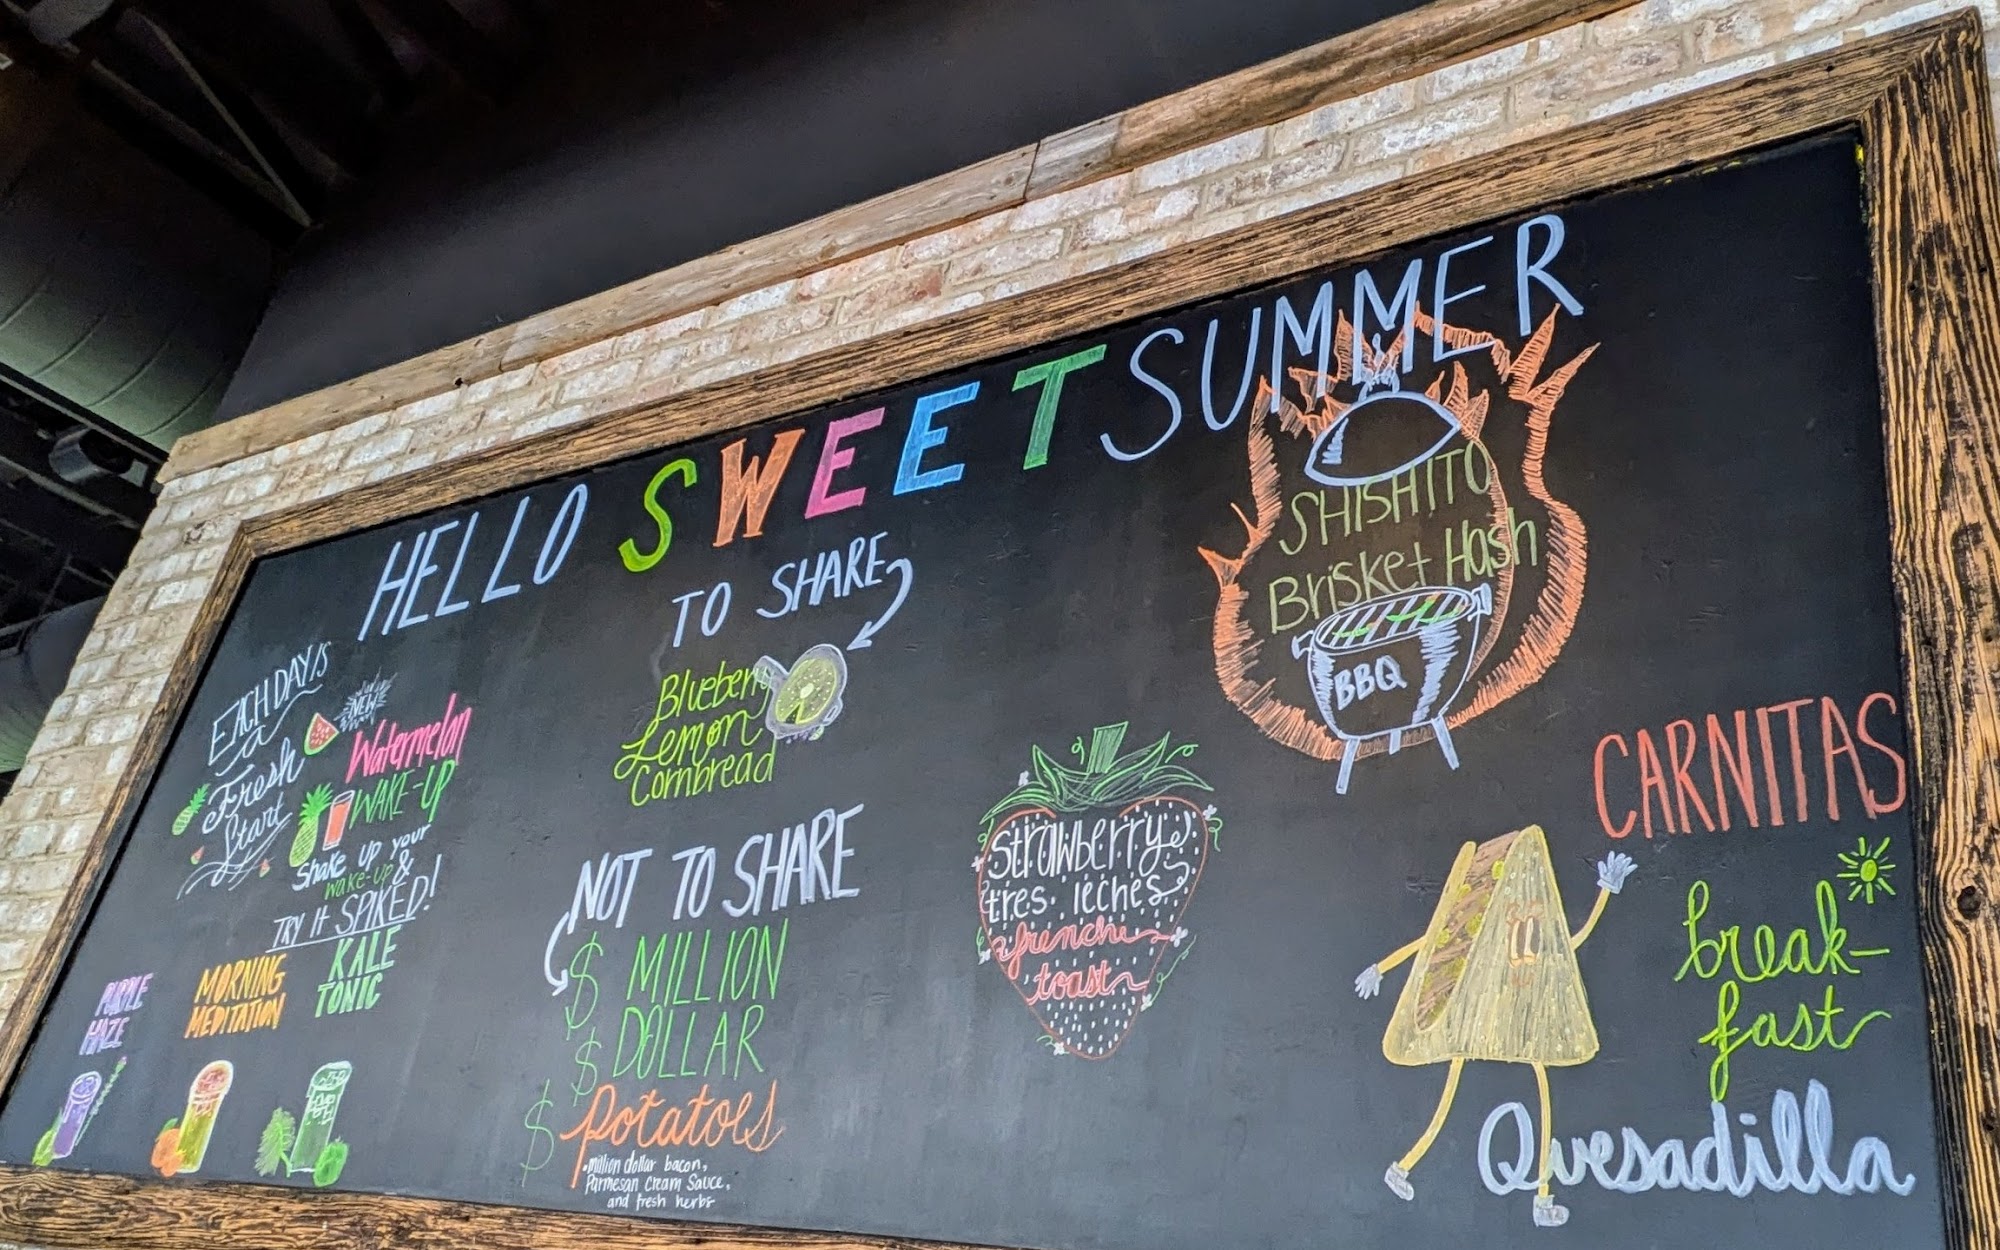 HELLO SWEET SUMMER
EACH DAY IS
a
Fresh
Start
NEW
Watermelon
WAKE-UP
Shake up your
wake-up &
TRY IT SPIKED!
PURPLE
HAZE
MORNING
MEDITATION
KALE
TONIC
TO SHARE
Blueberry
Lemon
Cornbread
NOT TO SHARE
$ MILLION
$ DOLLAR
$ Potatoes
million dollar bacon,
Parmesan cream sauce,
and fresh herbs
strawberry
tres leches
french
toast
SHISHITO
Brisket Hash
BBQ
CARNITAS
break-
fast
Quesadilla